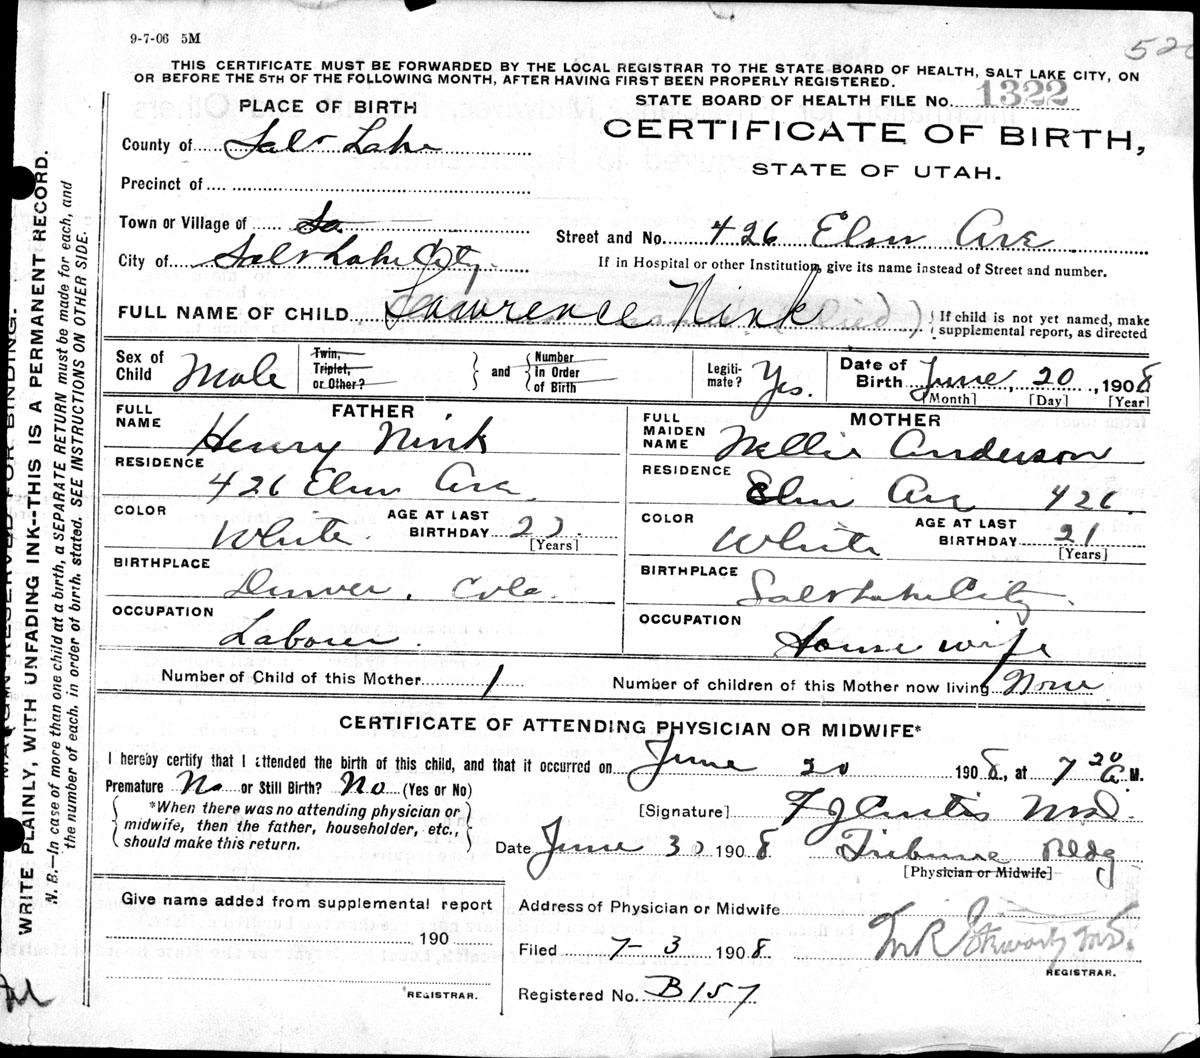 9-7-06 5M
THIS CERTIFICATE MUST BE FORWARDED BY THE LOCAL REGISTRAR TO THE STATE BOARD OF HEALTH, SALT LAKE CITY, ON
OR BEFORE THE 5TH OF THE FOLLOWING MONTH, AFTER HAVING FIRST BEEN PROPERLY REGISTERED.
PLACE OF BIRTH
STATE BOARD OF HEALTH FILE No. 1322
CERTIFICATE OF BIRTH,
STATE OF UTAH.
County of Salt Lake
Precinct of
Town or Village of
Street and No. 426 Elm Ave
City of Salt Lake City
If in Hospital or other Institution, give its name instead of Street and number.
FULL NAME OF CHILD Lawrence Nink (died)
If child is not yet named, make
supplemental report, as directed
Sex of Child Male
Twin, Triplet, or Other?
and
Number In Order of Birth
Legitimate? Yes.
Date of Birth June, 20, 1908
[Month] [Day] [Year]
FATHER
FULL NAME Henry Nink
RESIDENCE 426 Elm Ave.
COLOR White.
AGE AT LAST BIRTHDAY 22
[Years]
BIRTHPLACE Denver, Colo.
OCCUPATION Laborer.
MOTHER
FULL MAIDEN NAME Nellie Anderson
RESIDENCE Elm Ave 426.
COLOR White
AGE AT LAST BIRTHDAY 21
[Years]
BIRTHPLACE Salt Lake City.
OCCUPATION House wife
Number of Child of this Mother 1
Number of children of this Mother now living None
CERTIFICATE OF ATTENDING PHYSICIAN OR MIDWIFE*
I hereby certify that I attended the birth of this child, and that it occurred on June 20 1908, at 7 20 A.M.
Premature No or Still Birth? No (Yes or No)
*When there was no attending physician or
midwife, then the father, householder, etc.,
should make this return.
[Signature] F J Curtis M.D.
Date June 30 1908 Tribune Bldg
[Physician or Midwife]
Give name added from supplemental report
190
REGISTRAR.
Address of Physician or Midwife
Filed 7-3 1908
REGISTRAR.
Registered No. B157
MARGIN RESERVED FOR BINDING.
WRITE PLAINLY, WITH UNFADING INK--THIS IS A PERMANENT RECORD.
N. B.—In case of more than one child at a birth, a SEPARATE RETURN must be made for each, and
the number of each, in order of birth, stated. SEE INSTRUCTIONS ON OTHER SIDE.